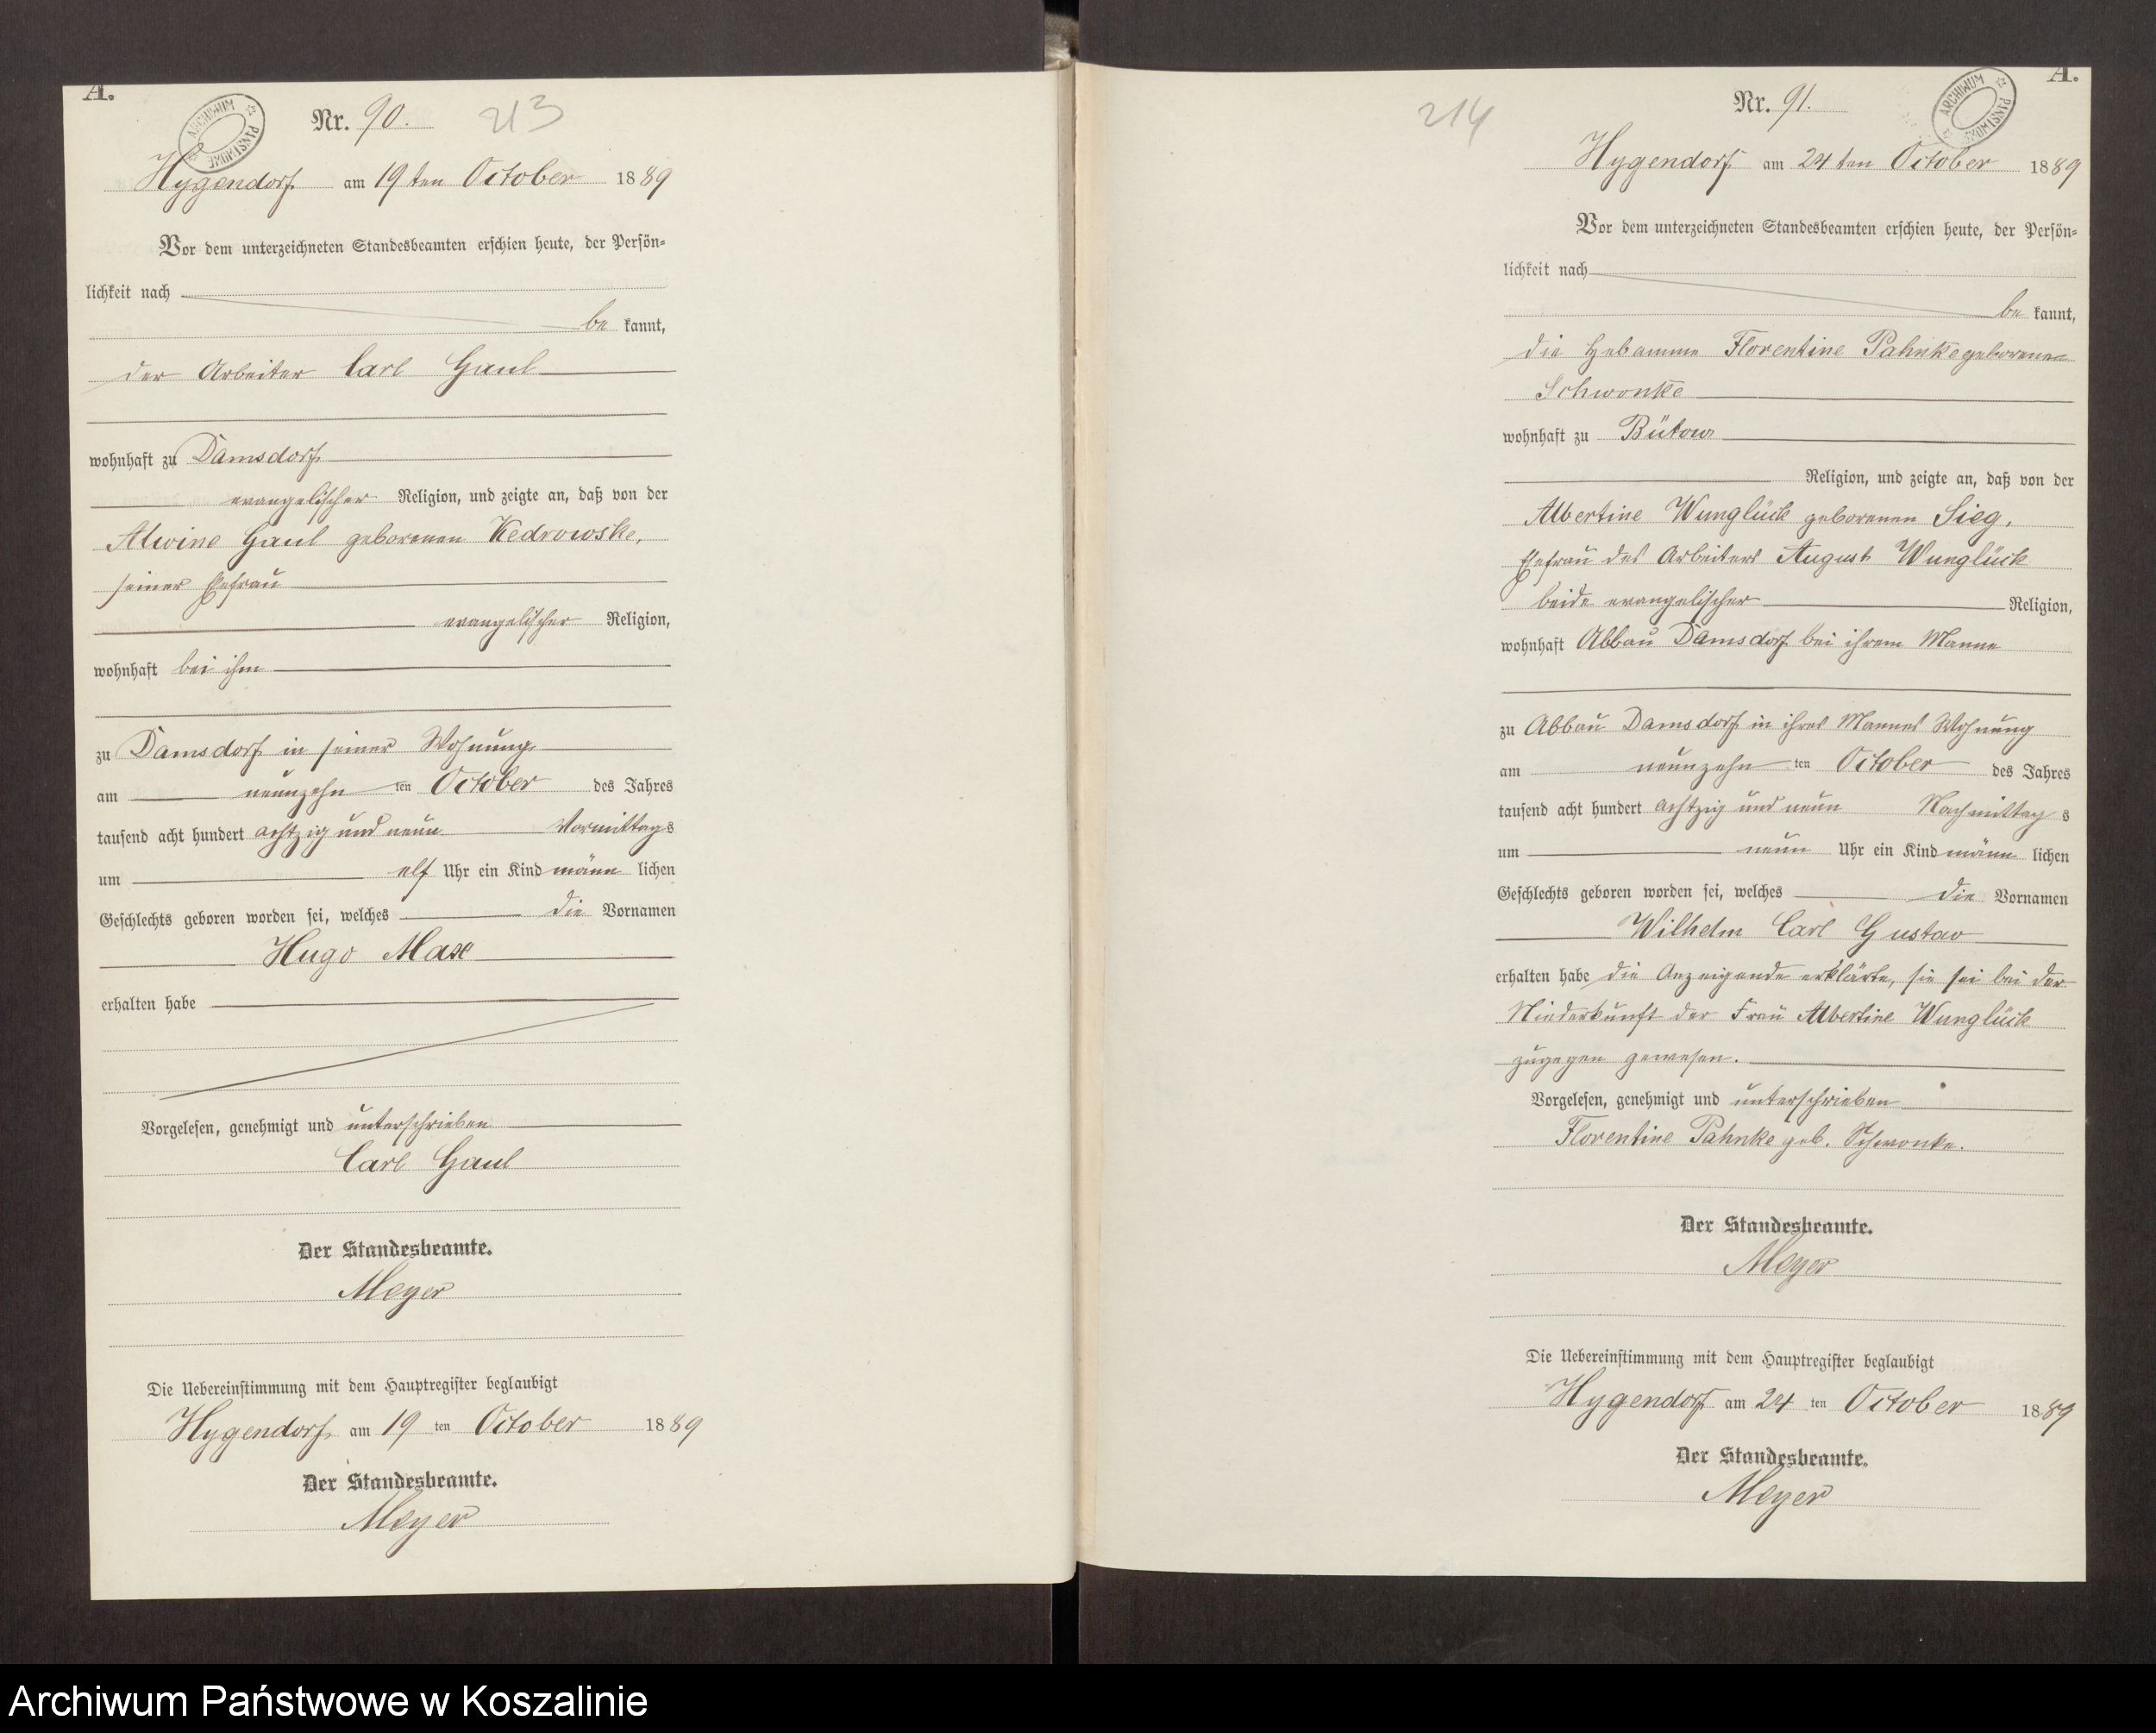 A.
ARCHIWUM PAŃSTWOWE
Nr. 90.
213
Hygendorf am 19 ten October 1889
Vor dem unterzeichneten Standesbeamten erschien heute, der Persön=
lichkeit nach
be kannt,
der Arbeiter Carl Gaul
wohnhaft zu Damsdorf
evangelischer Religion, und zeigte an, daß von der
Alwine Gaul geborenen Kedrowske,
seiner Ehefrau
evangelischer Religion,
wohnhaft bei ihm
zu Damsdorf in seiner Wohnung
am neunzehn ten October des Jahres
tausend acht hundert achtzig und neun Vormittags
um elf Uhr ein Kind männ lichen
Geschlechts geboren worden sei, welches die Vornamen
Hugo Max
erhalten habe
Vorgelesen, genehmigt und unterschrieben
Carl Gaul
Der Standesbeamte.
Meyer
Die Uebereinstimmung mit dem Hauptregister beglaubigt
Hygendorf am 19 ten October 1889
Der Standesbeamte.
Meyer
A.
ARCHIWUM PAŃSTWOWE
214
Nr. 91.
Hygendorf am 24 ten October 1889
Vor dem unterzeichneten Standesbeamten erschien heute, der Persön=
lichkeit nach
be kannt,
die Hebamme Florentine Pahnke geborene
Schwonke
wohnhaft zu Bütow
Religion, und zeigte an, daß von der
Albertine Wunglück geborenen Sieg,
Ehefrau des Arbeiters August Wunglück
beide evangelischer Religion,
wohnhaft Abbau Damsdorf bei ihrem Manne
zu Abbau Damsdorf in ihres Mannes Wohnung
am neunzehn ten October des Jahres
tausend acht hundert achtzig und neun Nachmittag s
um neun Uhr ein Kind männ lichen
Geschlechts geboren worden sei, welches die Vornamen
Wilhelm Carl Gustav
erhalten habe die Anzeigende erklärte, sie sei bei der
Niederkunft der Frau Albertine Wunglück
zugegen gewesen.
Vorgelesen, genehmigt und unterschrieben
Florentine Pahnke geb. Schwonke.
Der Standesbeamte.
Meyer
Die Uebereinstimmung mit dem Hauptregister beglaubigt
Hygendorf am 24 ten October 1889
Der Standesbeamte.
Meyer
Archiwum Państwowe w Koszalinie